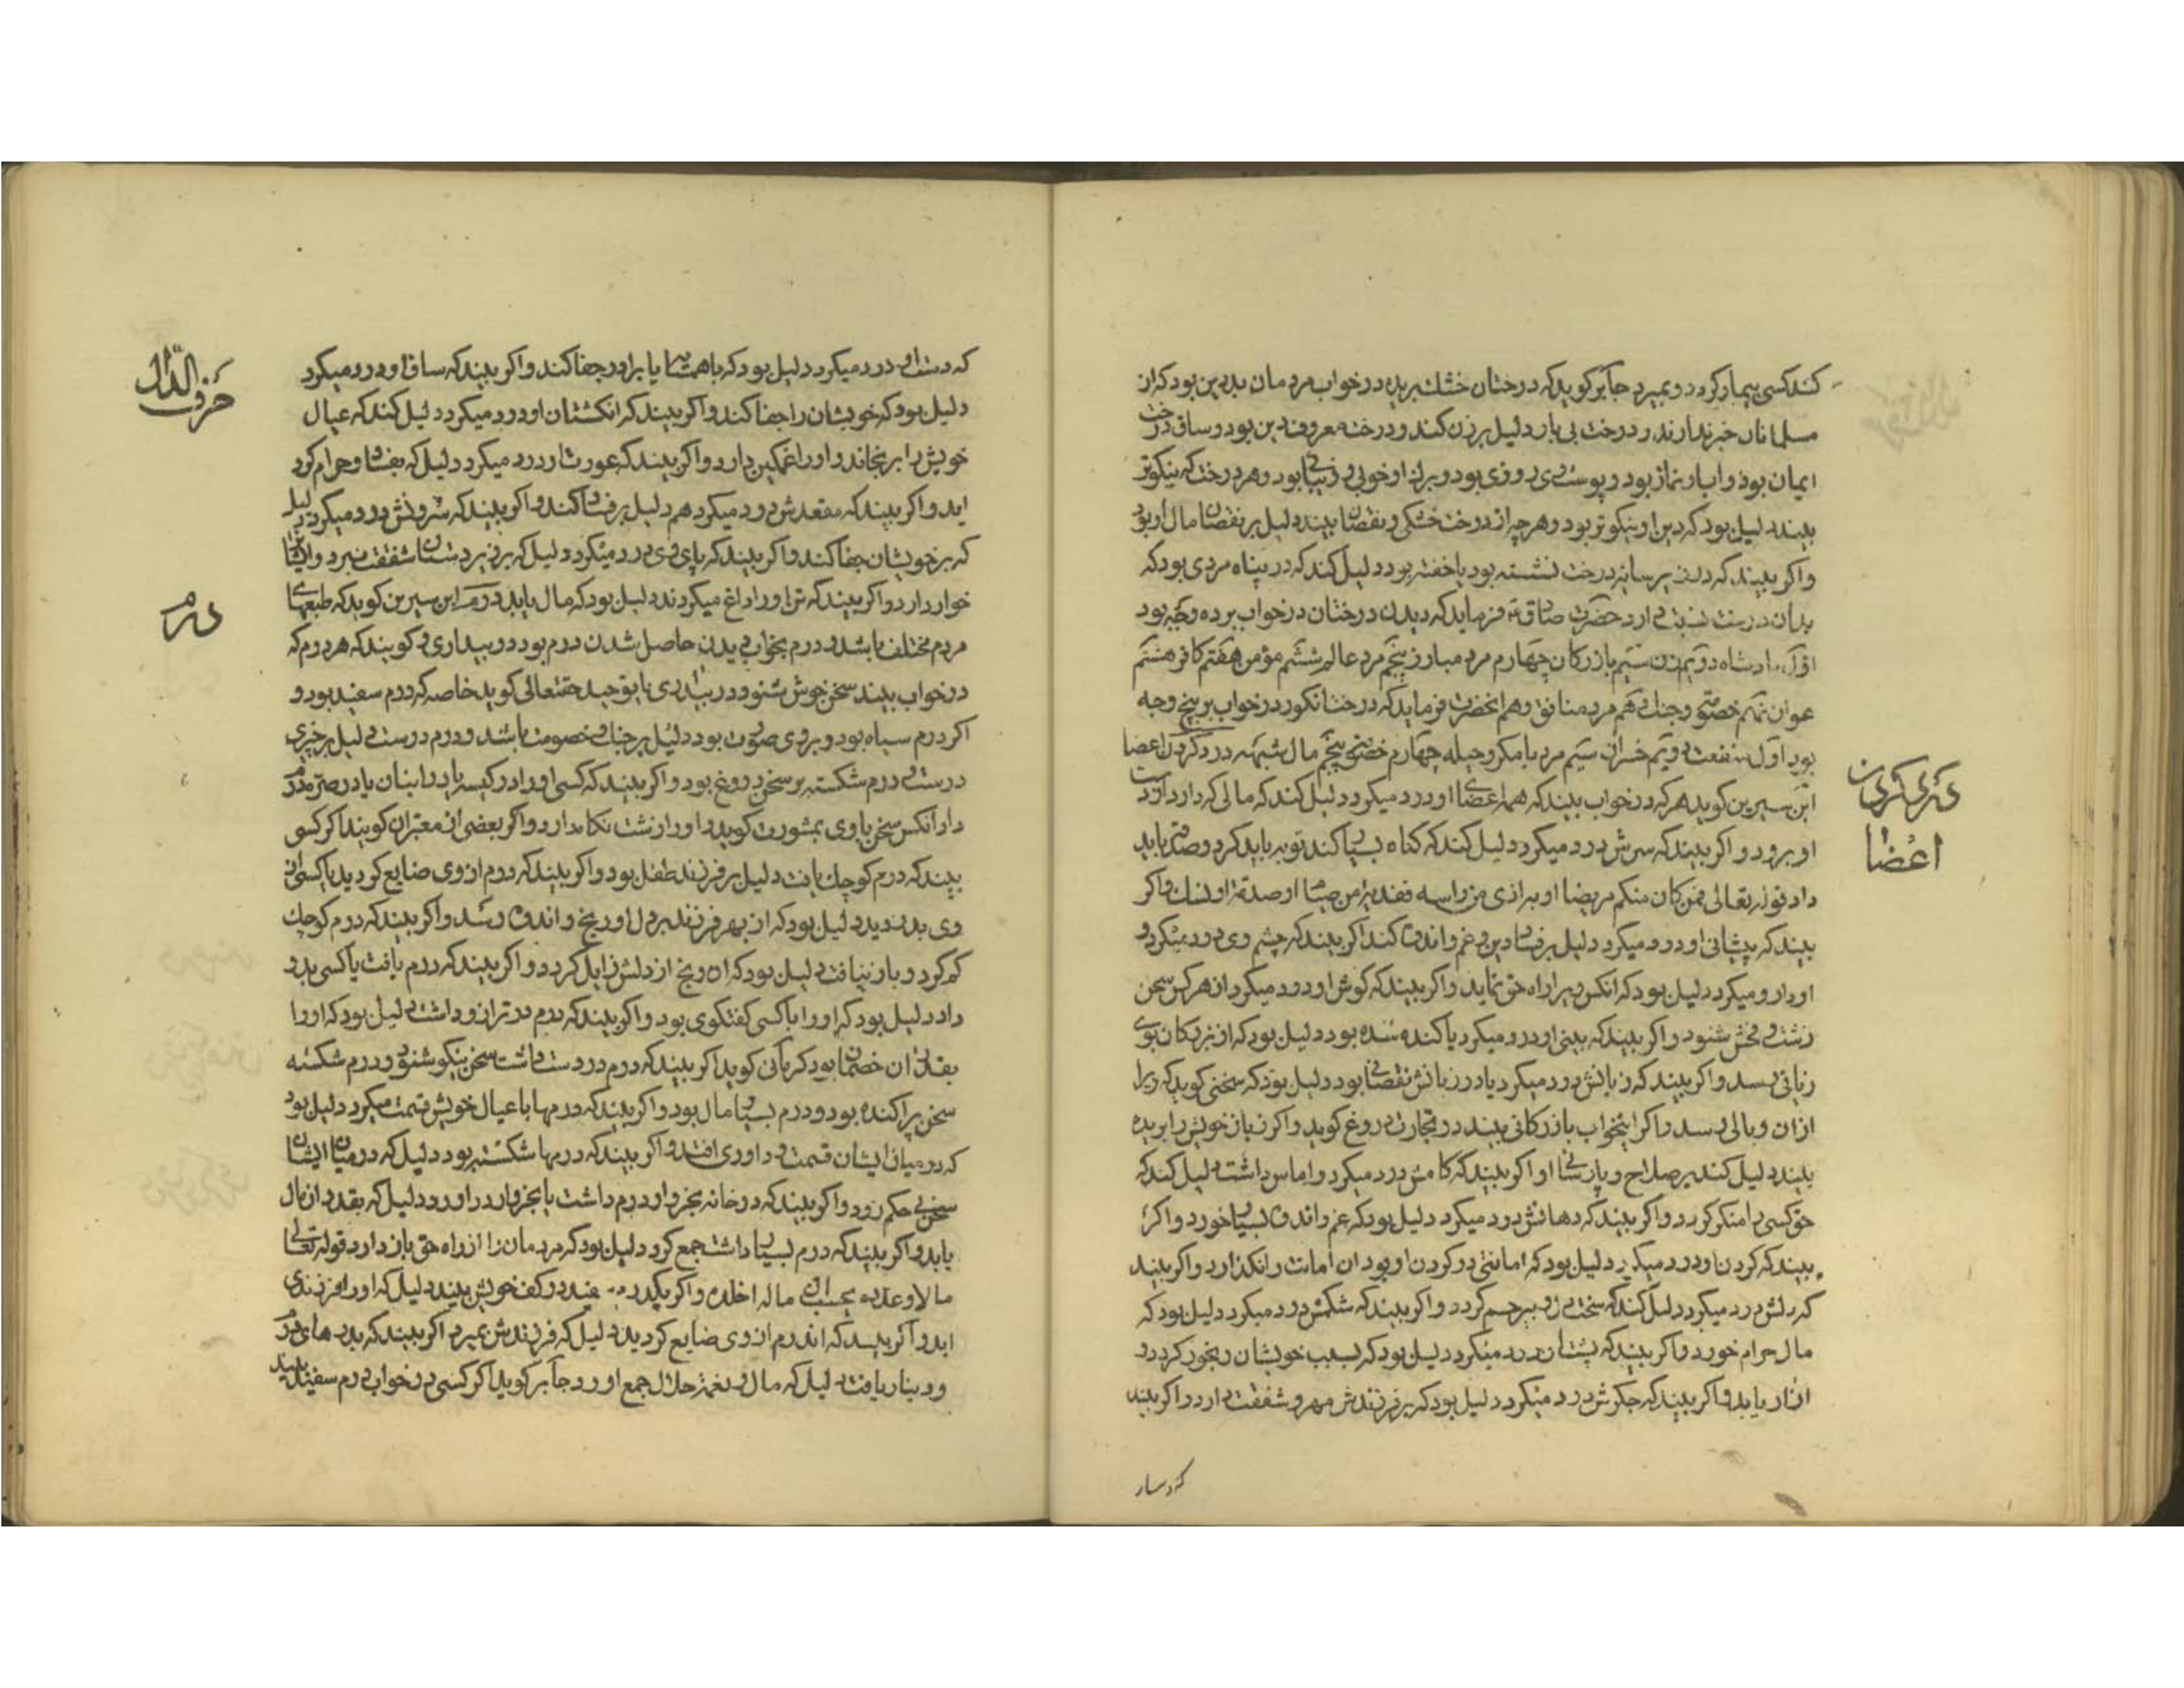 کند کسی بیمار کردد و بمیرد جابر کوید که درختان خشک بریده در خواب مردمان بدبین بود که از
مسلمانان خبر ندارند و درخت بی بار دلیل بر زن کند و درخت معروف دین بود و ساق درخت
ایمان بود و ابار نماز بود و پوست روزی بود و بر او خوبی و زیبائی بود و هر درخت که نیکوتر
بیند دلیل بود که دین او نیکوتر بود و هر چه از درخت خشکی و نقصان بیند دلیل بر نقصان مال او بود
و اکر بیند که در سایه درخت نشسته بود یا خفته بود دلیل کند که در پناه مردی بود که
بدان درخت نسبت دارد حضرت صادق فرماید که دیدن درختان در خواب بر ده وجه بود
اول پادشاه دویم زن سیم بازرکان چهارم مرد مبارز پنجم مرد عالم ششم مؤمن هفتم کافر هشتم
عوان نهم خصومت و جنک دهم مرد منافق و هم انحضرت فرماید که درخت انکور در خواب بر پنج وجه
بود اول منفعت دویم خسران سیم مرد با مکر و حیله چهارم خصومت پنجم مال شبهه درد کردن اعضا
ابن سیرین کوید هر که در خواب بیند که همه اعضای او درد میکرد دلیل کند که مالی که دارد از دست
او برود و اکر بیند که سرش درد میکرد دلیل کند که کناه بسیار کند توبه باید کرد و صدقه باید
داد قوله تعالی فمن کان منکم مریضا او به اذی من راسه ففدیة من صیام او صدقة او نسک و اکر
بیند که پیشانی او درد میکرد دلیل بر فساد دین و غم و اندوه کند اکر بیند که چشم وی درد میکرد و
او دارو میکرد دلیل بود که انکس ویرا راه حق نماید و اکر بیند که کوش او درد میکرد از هر کس سخن
زشت و فحش شنود و اکر بیند که بینی او درد میکرد یا کنده شده بود دلیل بود که از بزرکان بوی
زیانی رسد و اکر بیند که زبانش درد میکرد یا در زبانش نقصانی بود دلیل بود که سخنی کوید که ویرا
ازان وبالی رسد و اکر این خواب بازرکانی بیند در تجارت دروغ کوید و اکر زبان خویش را بریده
بیند دلیل کند بر صلاح و پارسائی او اکر بیند که کامش درد میکرد و اماس داشت دلیل کند که
حق کسی را منکر کردد و اکر بیند که دهانش درد میکرد دلیل بود که غم و اندوه بسیار خورد و اکر
بیند که کردن او درد میکرد دلیل بود که امانتی در کردن او بود ان امانت را نکذارد و اکر بیند
که دلش درد میکرد دلیل کند که سخت رو و بیرحم کردد و اکر بیند که شکمش درد میکرد دلیل بود که
مال حرام خورد و اکر بیند که پشتان درد میکرد دلیل بود که بسبب خویشان رنجور کردد و
ازار یابد و اکر بیند که جکرش درد میکرد دلیل بود که بر فرزندش مهر و شفقت دارد و اکر بیند
درد کردن
اعضا
که دست او درد میکرد دلیل بود که با همسایه یا برادر جفا کند و اکر بیند که ساق او درد میکرد
دلیل بود که خویشان را جفا کند و اکر بیند که انکشتان او درد میکرد دلیل کند که عیال
خویش را برنجاند و او را غمکین دارد و اکر بیند که عورت او درد میکرد دلیل که بفساد و حرام کرد
اید و اکر بیند که مقعدش درد میکرد هم دلیل بر فساد کند و اکر بیند که درد میکرد دلیل
که بر خویشان جفا کند و اکر بیند که پای وی درد میکرد دلیل که بر زیر دستان شفقت نبرد و ایشانرا
خوار دارد و اکر بیند که تن او را داغ میکردند دلیل بود که مال یابد درم ابن سیرین کوید که طبعهای
مردم مختلف باشد و درم بخواب دیدن حاصل شدن درم بود در بیداری و کویند که هر درم که
در خواب بیند سخن خوش شنود و در بیداری یا توحید حقتعالی کوید خاصه که درم سفید بود و
اکر درم سیاه بود و بر وی صورت بود دلیل بر جنک و خصومت باشد و درم درست دلیل بر خبری
درست و درم شکسته بر سخن دروغ بود و اکر بیند که کسی او را در کیسه یا در انبان یا در صره درم
داد انکس سخن با وی بمشورت کوید و او را از نشت نکا دارد و اکر بعضی از معبران کویند اکر کسی
بیند که درم کوچک یافت دلیل بر فرزند طفل بود و اکر بیند که درم از وی ضایع کردید یا کسی از
وی بدزدید دلیل بود که از بهر فرزند بر دل او رنج و اندوه رسد و اکر بیند که درم کوچک
کم کرد و باز نیافت دلیل بود که ان رنج از دلش زایل کردد و اکر بیند که درم یافت یا کسی بدو
داد دلیل بود که او را با کسی کفتکوی بود و اکر بیند که درم در ترازو داشت دلیل بود که او را
بقدر ان خصمان بود که بانی کوید اکر بیند که درم در دست داشت سخن نیکو شنود و درم شکسته
سخن پراکنده بود و درم بسیار مال بود و اکر بیند که درمها با عیال خویش قسمت میکرد دلیل بود
که در میان ایشان قسمت و داوری افتد و اکر بیند که درمها شکسته بود دلیل که در میان ایشان
سخن بی حکم رود و اکر بیند که در خانه بخروار درم داشت یا بخروار در اورد دلیل که بقدر ان مال
یابد و اکر بیند که درم بسیار داشت جمع کرد دلیل بود که مردمان را از راه حق باز دارد قوله تعالی
مالا و عدده یحسب ان ماله اخلده و اکر یکدرم سفید در کف خویش بیند دلیل که او را فرزندی
اید و اکر بیند که اندرم از وی ضایع کردید دلیل که فرزندش بمیرد اکر بیند که بدرهای درم
و دینار یافت دلیل که مال و نعمت حلال جمع اورد جابر کوید اکر کسی در خواب درم سفید بیند
حرف الدال
درم